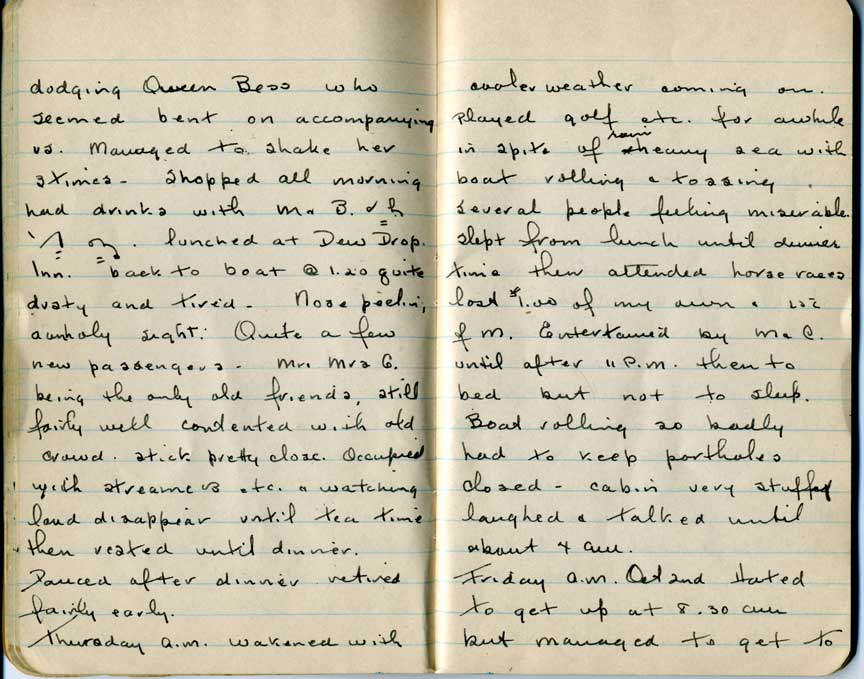 dodging Queen Bess who
seemed bent on accompanying
us. Managed to shake her
3 times - Shopped all morning
had drinks with Mr B. &
. lunched at Dew Drop.
Inn. back to boat @ 1.20 quite
dusty and tired - Nose peelin,
unholy sight. Quite a few
new passengers - Mr. Mrs G.
being the only old friends, still
fairly well contented with old
crowd. stick pretty close. Occupied
with streamers etc. & watching
land disappear until tea time
then rested until dinner.
Danced after dinner retired
fairly early.
Thursday a.m. wakened with
cooler weather coming on.
Played golf etc. for awhile
in spite of rain heavy sea with
boat rolling & tossing
several people feeling miserable.
Slept from lunch until dinner
time then attended horse races
lost $1.00 of my own &
of M. Entertained by Mr C.
until after 11 P.m. then to
bed but not to sleep.
Boat rolling so badly
had to keep portholes
closed - cabin very stuffy
laughed & talked until
about 4 am.
Friday a.m. Oct 2nd Hated
to get up at 8.30 am
but managed to get to